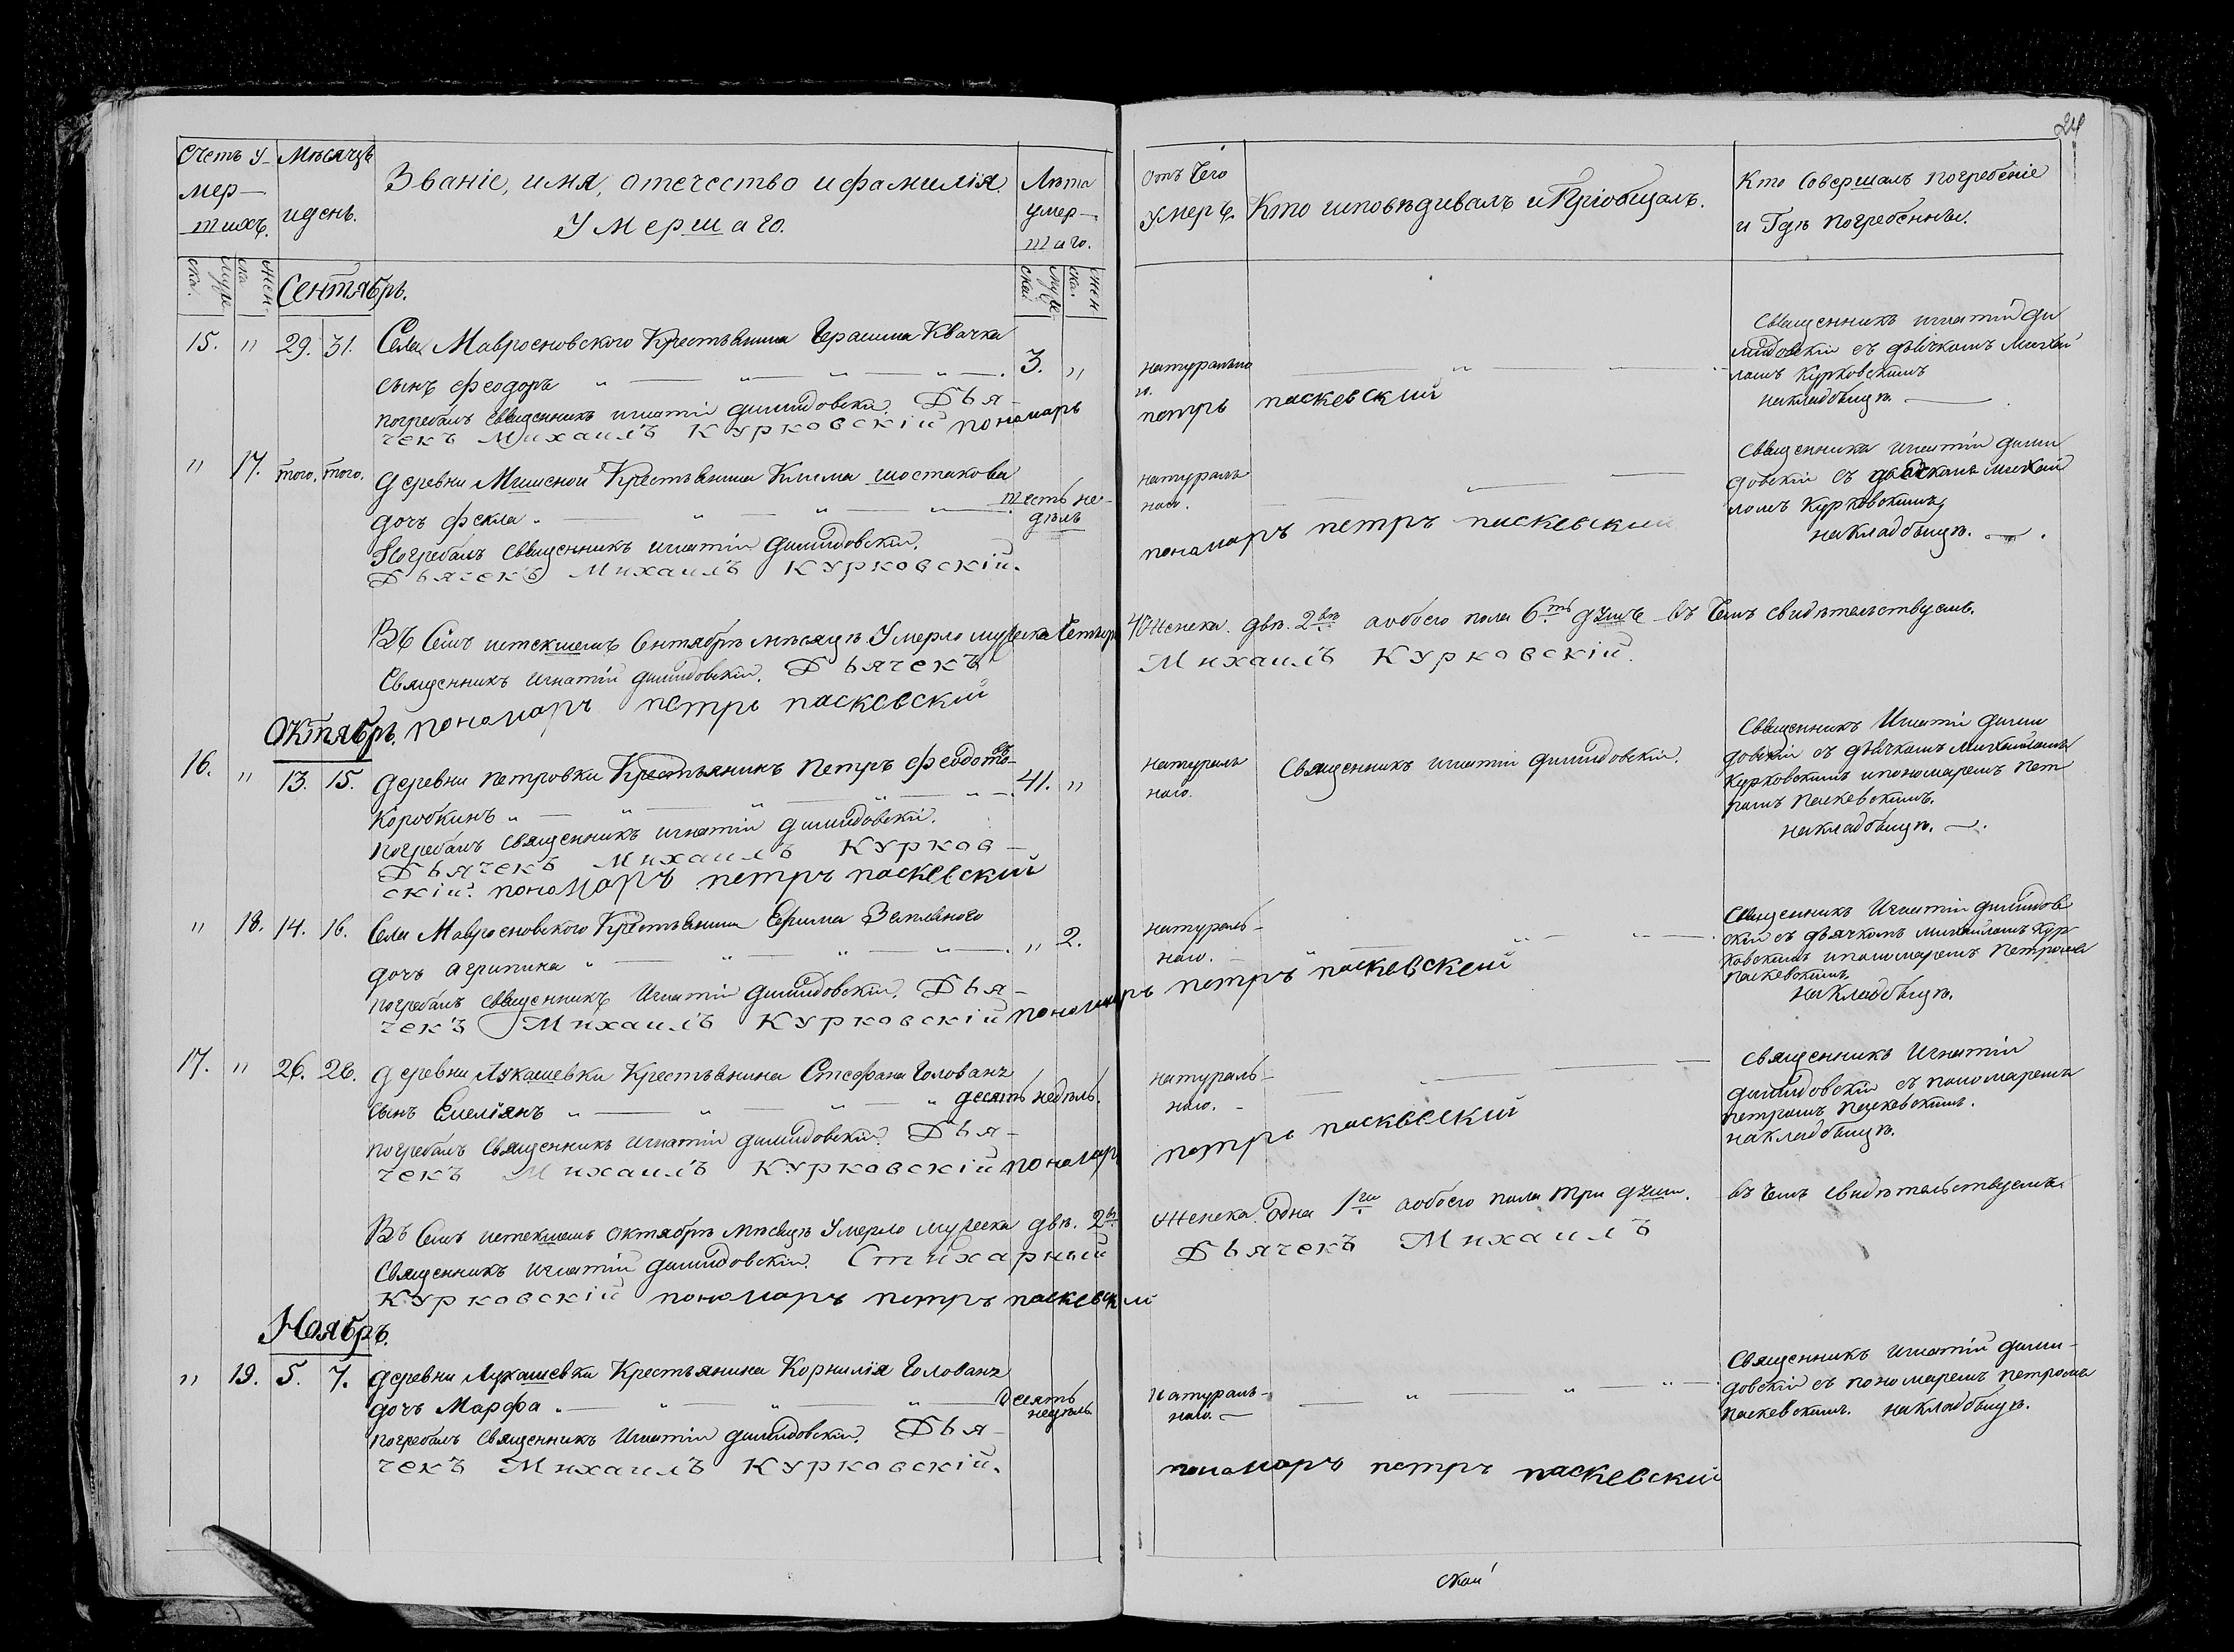 24
Счетъ у-
мер-
шихъ.
Мѣсяцъ
и день.
Званіе, имя, отечество и фамилія
Умершаго.
Лѣта
умер-
шаго.
Муже
ска.
Жен
ска
Муже
скаи
жен
ска.
отъ Чего
умеръ.
Кто исповѣдивалъ и Пріобщалъ.
Кто Совершалъ погребеніе
и Гдѣ погребенны.
Сентябрь.
15. " 29. 31. Села Мавросновского Крестьянина Герасима Квачка
сынъ Феодоръ " — " — " — " — . 3. "
погребалъ священникъ игнатій Дья-
чекъ Михаилъ Курковскій пономарь
натурально
го.
петръ паскевский
Священникъ игнатій ди
мидовскій съ дьячкомъ Михаи
ломъ Курковскимъ
накладбищѣ. —
" 17. того. того. деревни Мишеной Крестьянина Клима шостакова
дочь Фекла " — " — " — шесть не-
дѣль
Погребалъ священникъ игнатій
Дьячекъ Михаилъ Курковскій.
натураль
наго.
пономаръ петръ паскевский
Священникъ игнатій дими
довскій съ дьячкомъ михаи
ломъ Курковскимъ
накладбищѣ. —
Въ Семъ истекшемъ Сентябрѣ мѣсяцѣ Умерло мужеска Четыре 4 Женска. двѣ. 2вѣ аобоего пола 6ть душъ въ Чемъ свидѣтельствуемъ.
Священникъ Игнатій Дьячекъ Михаилъ Курковскій.
пономаръ петръ паскевский
Октябрь.
16. " 13. 15. деревни Петровки Крестьяникъ Петръ Феодото-
въ
Коробкинъ " — " — " — " — . 41. "
погребалъ Священникъ игнатій
Дьячекъ Михаилъ Курков-
скій. пономаръ петръ паскевский
натураль
наго.
Священникъ игнатій
Священникъ Игнатій дими
довскій съ дьячкомъ Михаиломъ
Курковскимъ ипономаремъ Пет
ромъ Паскевскимъ.
накладбищѣ. —
" 18. 14. 16. Села Мавросновского Крестьянина Ефима
дочь агрипина " — " — " — . " 2.
погребалъ священникъ Игнатій Дья-
чекъ Михаилъ Курковскій пономаръ петръ паскевский
натураль-
наго.
Священникъ Игнатій димидов
скій съ дьячкомъ михаиломъ Кур
ковскимъ ипономаремъ Петромъ
паскевскимъ.
накладбищѣ.
17. " 26. 28. деревни Лукашевки Крестьянина Стефана Голованъ
сынъ Емеліянъ " — " — " — " десять недѣль.
погребалъ Священникъ игнатій Дья-
чекъ Михаилъ Курковскій пономар
натураль-
наго. -
петръ паскевский
Священникъ Игнатій
димидовскій съ пономаремъ
петромъ Паскевскимъ.
накладбищѣ.
Въ Семъ истекшемъ октябрѣ мѣсяцѣ Умерло мужеска двѣ. 2вѣ Женска. Одна 1на аобоего пола три душы. въ Чемъ свидѣтельствуемъ.
Священникъ игнатій Стихарный Дьячекъ Михаилъ
Курковскій пономаръ петръ паскевский
Ноябрь.
" 19. 5. 7. деревни Лукашевки Крестьянина Корнилія Голованъ
дочь Марфа " — " — " — " — Десять
недѣль
погребалъ Священникъ Игнатій Дья-
чекъ Михаилъ Курковскій.
натураль-
наго. —
пономаръ петръ паскевский
Священникъ игнатій дими-
довскій съ пономаремъ петромъ
паскевскимъ. накладбищѣ.
скаи